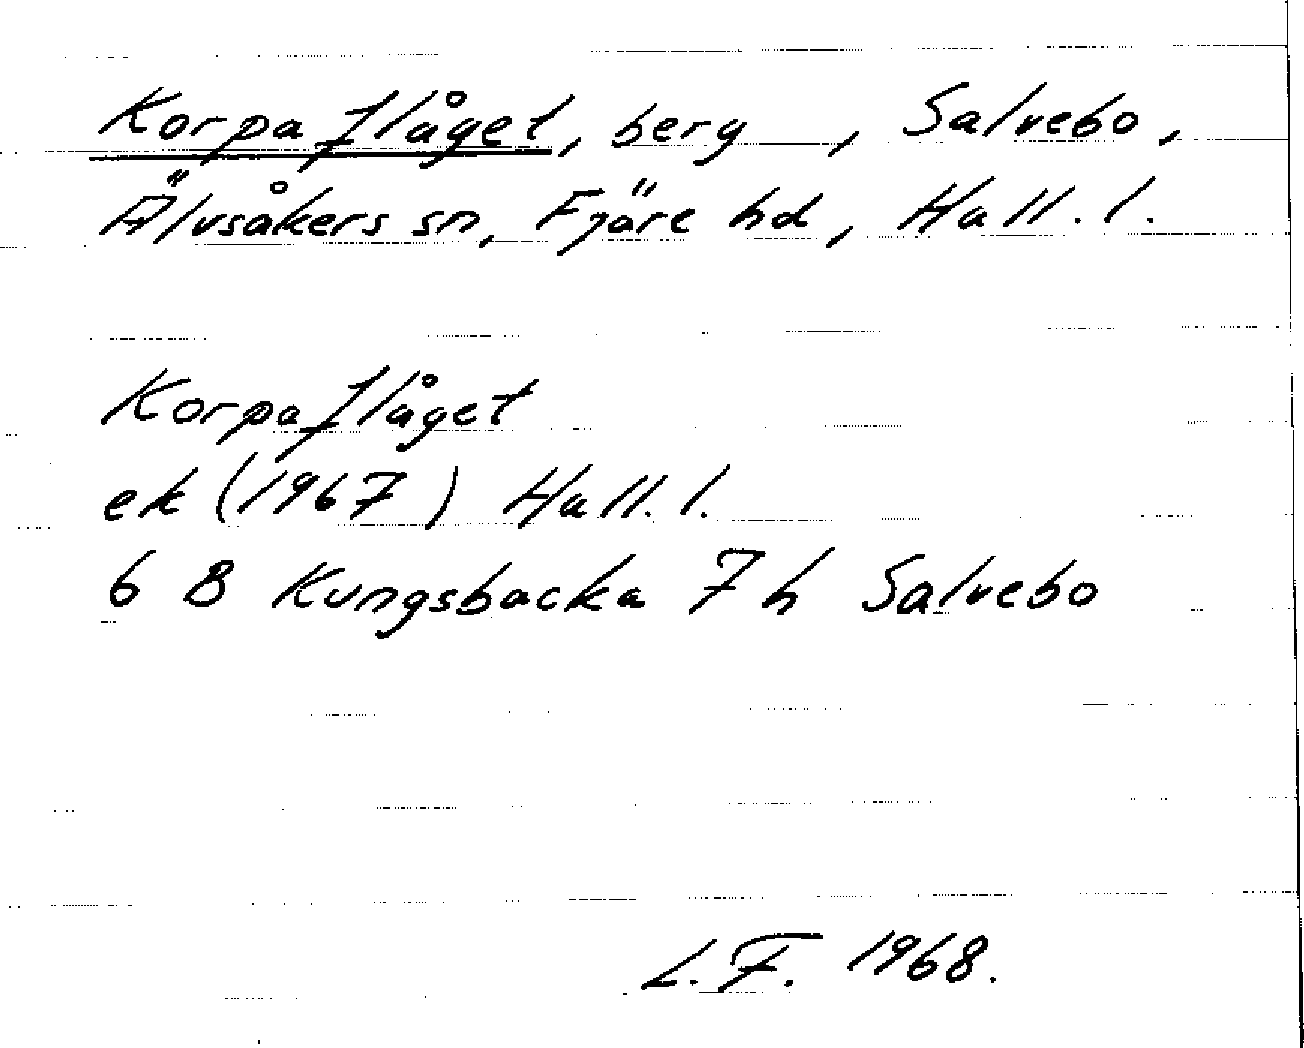 Korpaflåget, berg, Salvebo,
Älvsåkers sn, Fjäre hd, Hall. l.
Korpaflåget
ek (1967) Hall. l.
6 B Kungsbacka 7 h Salvebo
L. F. 1968.